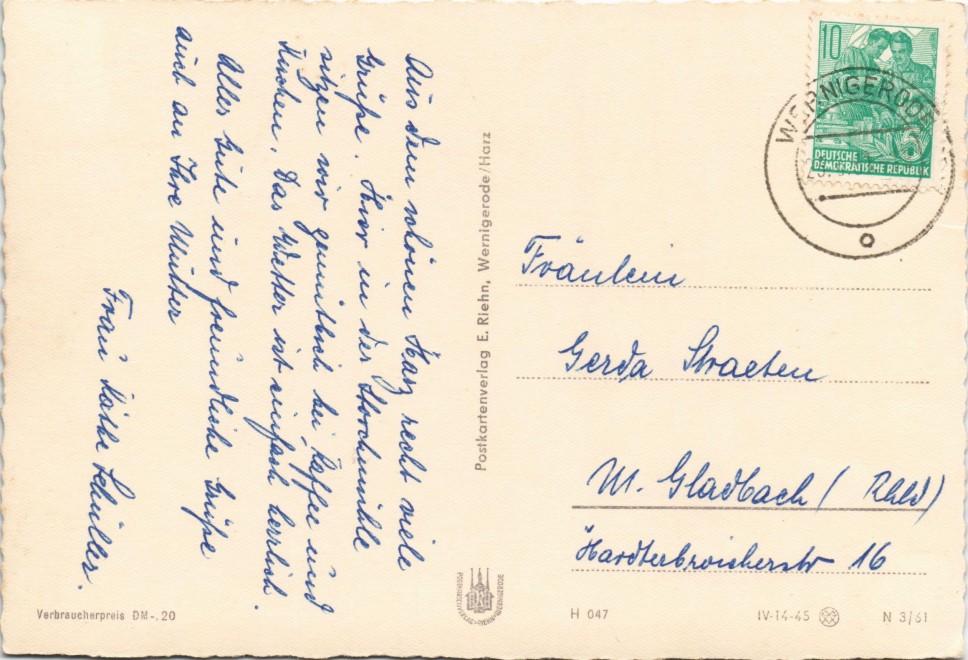 Aus dem schönen Harz recht viele
Grüße. Hier in der Storchmühle
sitzen wir gemütlich bei Kaffee und
Kuchen. Das Wetter ist einfach herrlich.
Alles Gute und freundliche Grüße
auch an Ihre Mutter
Frau Käthe Schüller.
Postkartenverlag E. Riehn, Wernigerode/Harz
10
DEUTSCHE
DEMOKRATISCHE REPUBLIK
WERNIGERODE
Fräulein
Gerda Straeten
M. Gladbach (Rhld)
Hardterbroicherstr 16
Verbraucherpreis DM-.20
H 047
IV-14-45
N 3/61